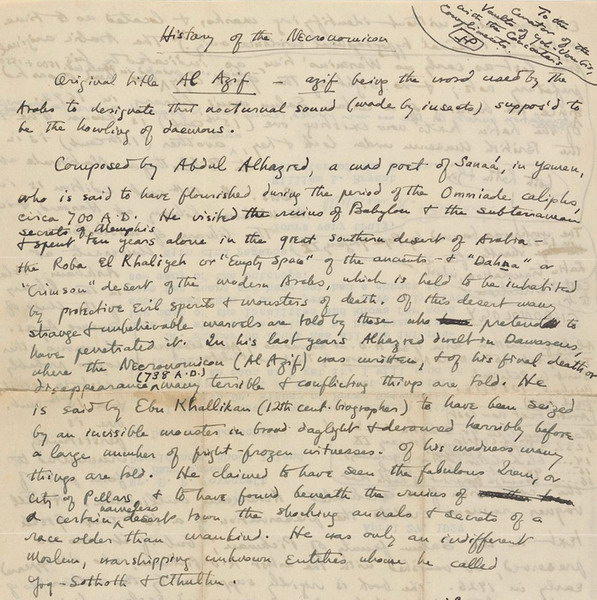 To the
Curator of the
Vaults of Yoh-Vombis,
with the Concoctor's
Compliments.
HP
History of the Necronomicon
Original title Al Azif — azif being the word used by the
Arabs to designate that nocturnal sound (made by insects) suppos'd to
be the howling of daemons.
Composed by Abdul Alhazred, a mad poet of Sanaá, in Yemen,
who is said to have flourished during the period of the Ommiade caliphs,
circa 700 A.D. He visited the ruins of Babylon & the subterranean
secrets of Memphis
& spent ten years alone in the great southern desert of Arabia —
the Roba El Khaliyeh or "Empty Space" of the ancients — & "Dahna" or
"Crimson" desert of the modern Arabs, which is held to be inhabited
by protective evil spirits & monsters of death. Of this desert many
strange & unbelievable marvels are told by those who pretend to
have penetrated it. In his last years Alhazred dwelt in Damascus,
where the Necronomicon (Al Azif) was written, & of his final death or
disappearance (738 A.D.) many terrible & conflicting things are told. He
is said by Ebn Khallikan (12th cent. biographer) to have been seized
by an invisible monster in broad daylight & devoured horribly before
a large number of fright-frozen witnesses. Of his madness many
things are told. He claimed to have seen the fabulous Irem, or
City of Pillars, & to have found beneath the ruins of
a certain nameless desert town the shocking annals & secrets of a
race older than mankind. He was only an indifferent
Moslem, worshipping unknown Entities whom he called
Yog-Sothoth & Cthulhu.